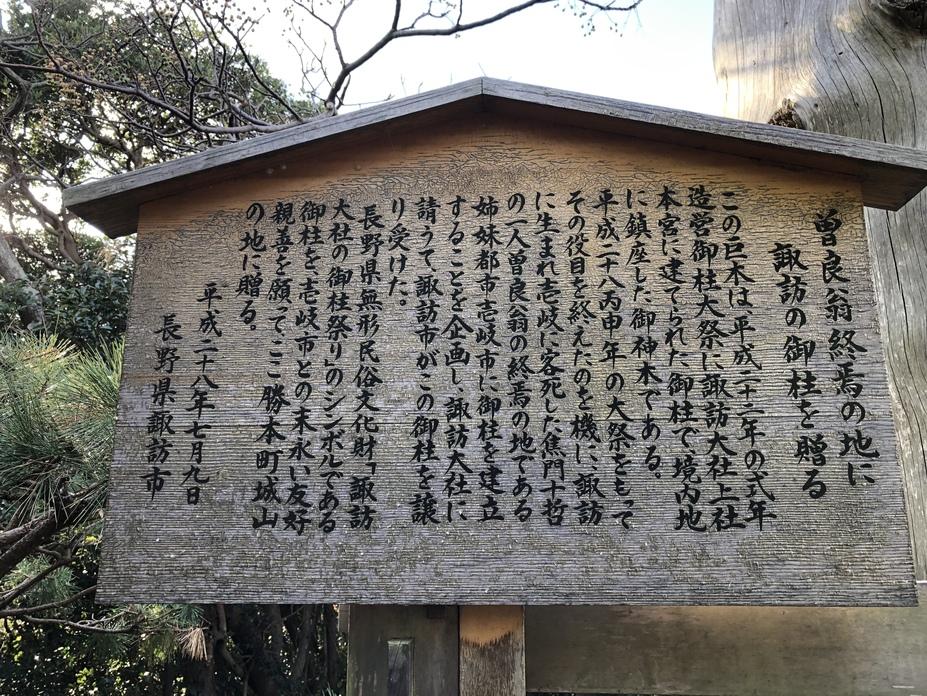 曽良翁終焉の地に
諏訪の御柱を贈る
この巨木は、平成二十二年の式年
造営御柱大祭に諏訪大社上社
本宮に建てられた御柱で、境内地
に鎮座した御神木である。
平成二十八丙申年の大祭をもって
その役目を終えたのを機に、諏訪
に生まれ壱岐に客死した蕉門十哲
の一人曽良翁の終焉の地である
姉妹都市壱岐市に御柱を建立
することを企画し、諏訪大社に
請うて諏訪市がこの御柱を譲
り受けた。
長野県無形民俗文化財「諏訪
大社の御柱祭り」のシンボルである
御柱を、壱岐市との末永い友好
親善を願ってここ勝本町城山
の地に贈る。
平成二十八年七月九日
長野県諏訪市